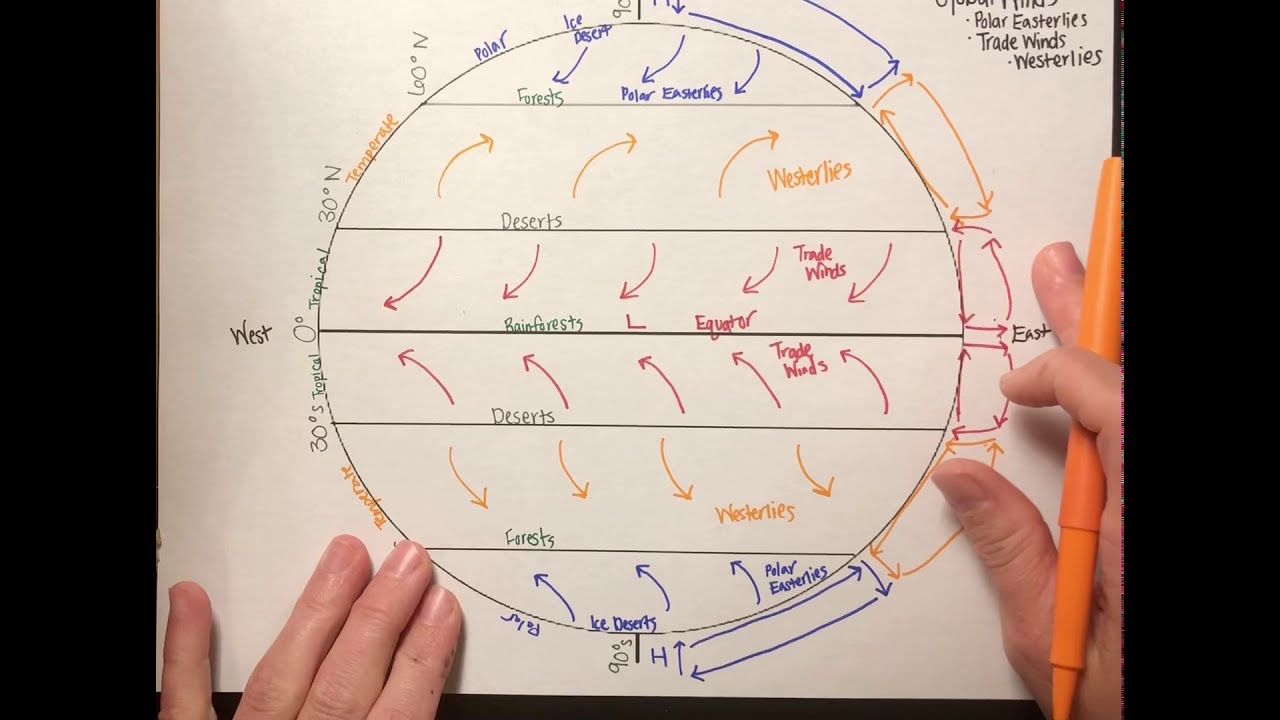 Global Winds
· Polar Easterlies
· Trade Winds
· Westerlies
90°
H
Ice
Desert
Polar
60° N
Forests
Polar Easterlies
Temperate
Westerlies
30° N
Deserts
Trade
Winds
Tropical
Rainforests
L
Equator
West
0°
East
Trade
Winds
Tropical
30° S
Deserts
Temperate
Westerlies
Forests
Polar
Easterlies
Polar
Ice Deserts
90°S
H